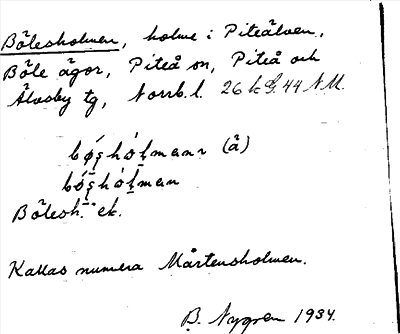 Bölesholmen, holme i Piteälven,
Böle ägor, Piteå sn, Piteå och
Älvsby tg, Norrb. l. 26 k G. 44 N.M.
(å)
Bölesh. ek.
Kallas numera Mårtensholmen.
B. Nygren 1934.